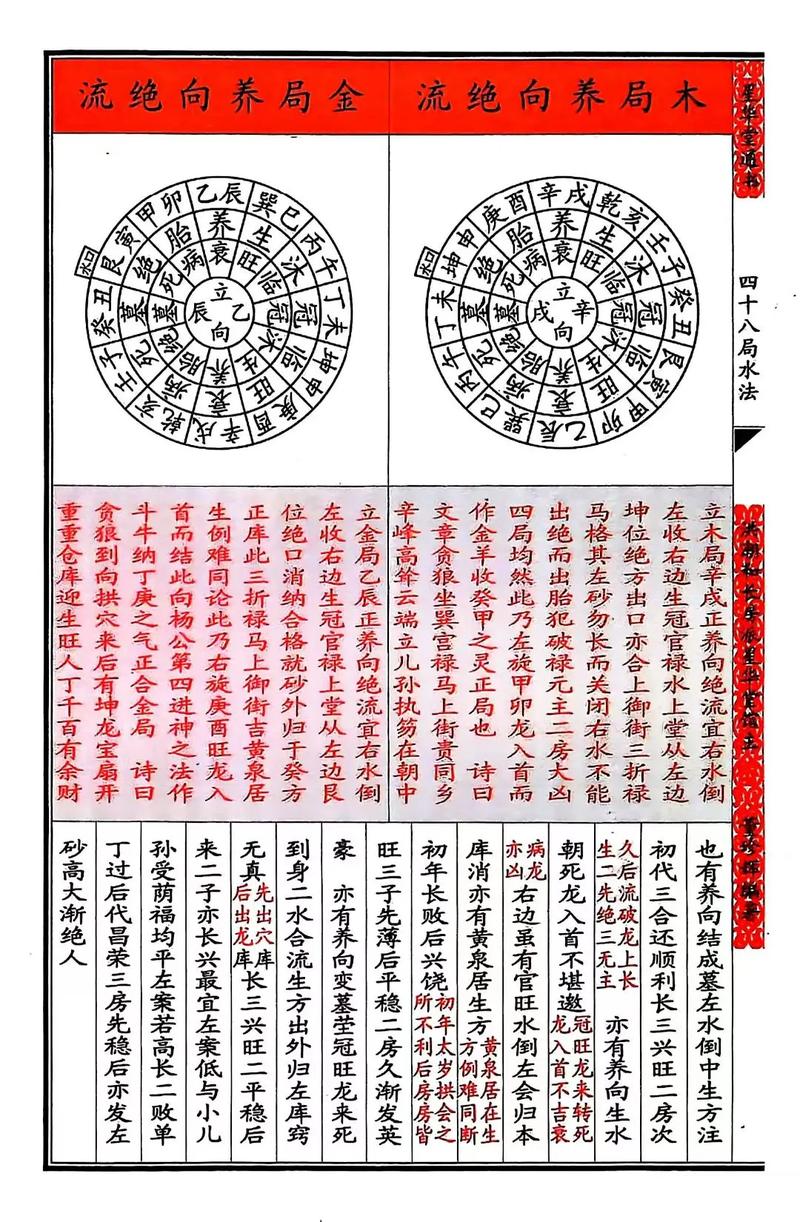 星华堂通书
四十八局水法
木局养向绝流
辛戌 乾亥 壬子 癸丑 艮寅 甲卯 乙辰 巽巳 丙午 丁未 坤申 庚酉
水口
养 生 沐 冠 临 旺 衰 病 死 墓 绝 胎
衰 旺 临 冠 沐 生 养 胎 绝 墓 死 病
立辛戌向
立木局辛戌正养向绝流宜右水倒
左收右边生冠官禄水上堂从左边
坤位绝方出口亦合上御街三折禄
马格其左砂勿长而关闭右水不能
出绝而出胎犯破禄元主二房大凶
四局均然此乃左旋甲卯龙入首而
作金羊收癸甲之灵正局也 诗曰
文章贪狼坐巽宫禄马上街贵同乡
辛峰高耸云端立儿孙执笏在朝中
金局养向绝流
乙辰 巽巳 丙午 丁未 坤申 庚酉 辛戌 乾亥 壬子 癸丑 艮寅 甲卯
水口
养 生 沐 冠 临 旺 衰 病 死 墓 绝 胎
衰 旺 临 冠 沐 生 养 胎 绝 墓 死 病
立乙辰向
立金局乙辰正养向绝流宜右水倒
左收右边生冠官禄上堂从左边艮
位绝口消纳合格就砂外归于癸方
正库此三折禄马上御街吉黄泉居
生例难同论此乃右旋庚酉旺龙入
首而结此向杨公第四进神之法作
斗牛纳丁庚之气正合金局 诗曰
贪狼到向拱穴来后有坤龙宝扇开
重重仓库迎生旺人丁千百有余财
也有养向结成墓左水倒中生方注
初代三合还顺利长三兴旺二房次
久后流破龙上长生二先绝三无主 亦有养向生水
朝死龙入首不堪邀冠旺龙来转死龙入首不吉衰
病龙亦凶右边虽有官旺水倒左会归本
库消亦有黄泉居生方黄泉居在生方例难同断
初年长败后兴饶初年太岁拱会之所不利后房房皆
旺三子先薄后平稳二房久渐发英
豪 亦有养向变墓茔冠旺龙来死
到身二水合流生方出外归左库窍
无真先出穴库后出龙库长三兴旺二平稳后
来二子亦长兴最宜左案低与小儿
孙受荫福均平左案若高长二败单
丁过后代昌荣三房先稳后亦发左
砂高大渐绝人